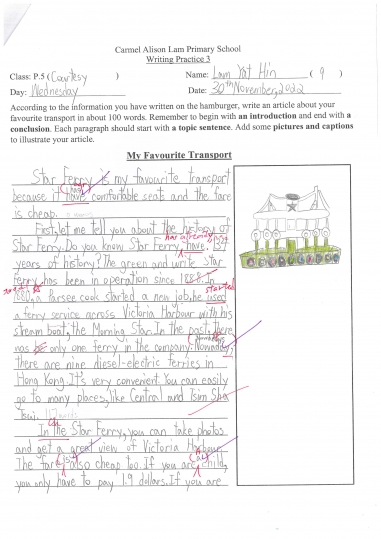 Carmel Alison Lam Primary School
Writing Practice 3
Class: P.5 (Courtesy ) Name: Lam Yat Hin ( 9 )
Day: Wednesday Date: 30th November, 2022
According to the information you have written on the hamburger, write an article about your
favourite transport in about 100 words. Remember to begin with an introduction and end with a
conclusion. Each paragraph should start with a topic sentence. Add some pictures and captions
to illustrate your article.
My Favourite Transport
Star Ferry is my favourite transport
because it have comfortable seats and the fare
is cheap.
First, let me tell you about the history of
Star Ferry. Do you know Star Ferry have
years of history? The green and write Star
Ferry has been in operation since 1888. In
1880, a Parsee cook started a new job, he used
a ferry service across Victoria Harbour with his
stream boat, the Morning Star. In the past, there
was only one ferry in the company. Nowaday,
there are nine diesel-electric ferries in
Hong Kong. It's very convenient. You can easily
go to many places, like Central and Tsim Sha
Tsui.
In the Star Ferry, you can take photos
and get a great view of Victoria Harbour.
The fare also cheap too. If you are child,
you only have to pay 1.9 dollars. If you are